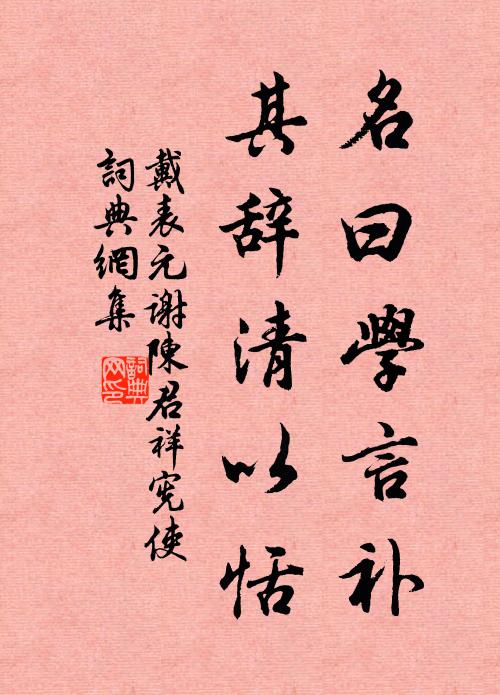 名曰學言补
其辞清以恬
戴表元谢陳君祥宪使
詞典網集
詞典網印